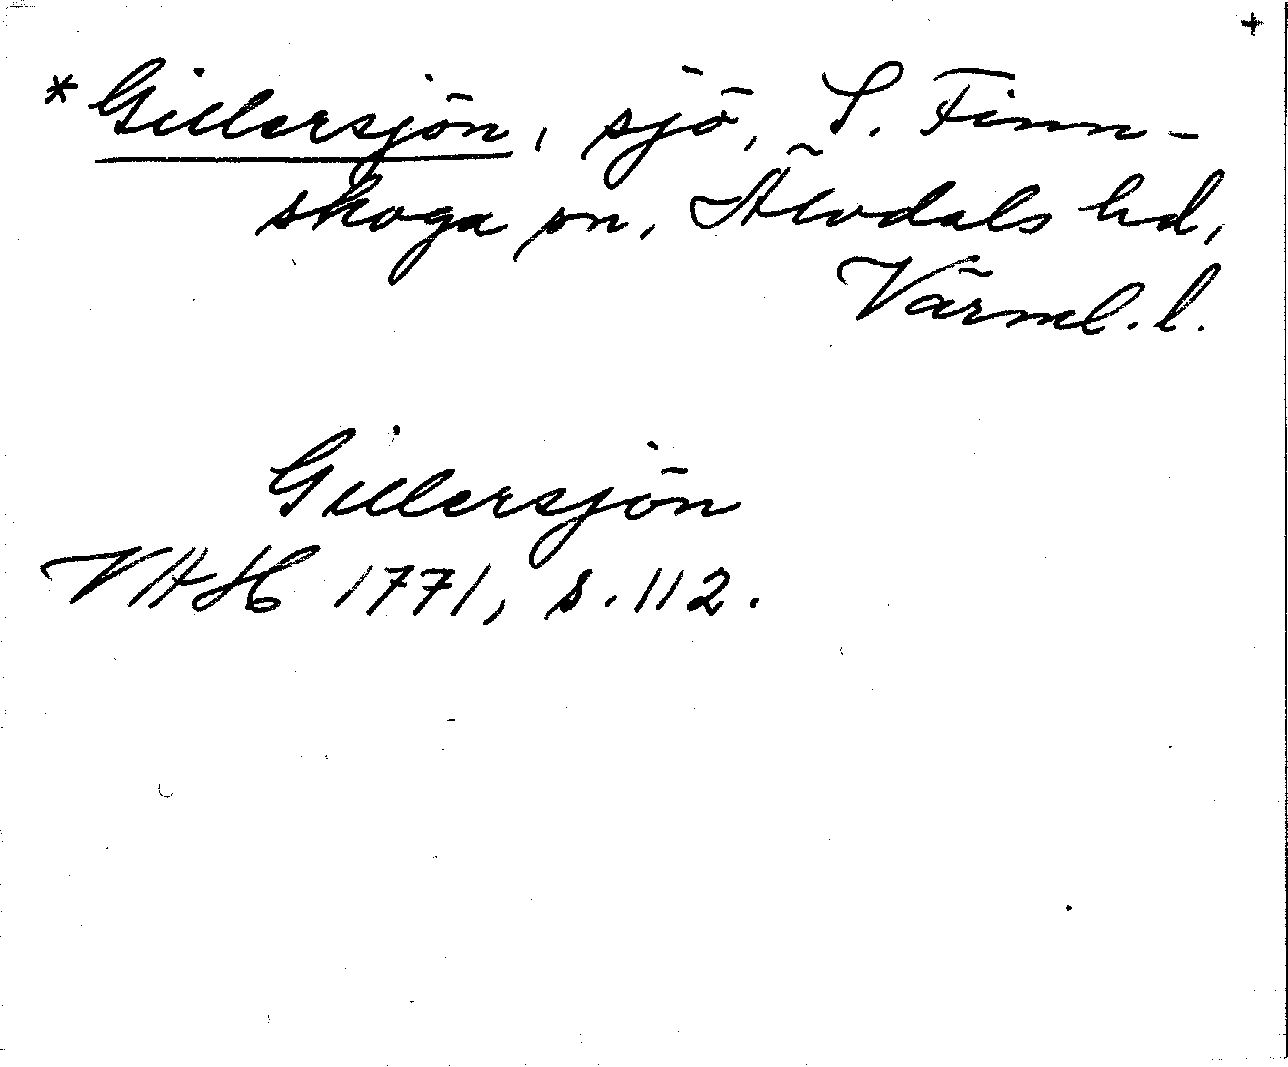 +
*Gillersjön, sjö, S. Finn-
skoga sn, Älvdals hd,
Värml. l.
Gillersjön
VAH 1771, s. 112.